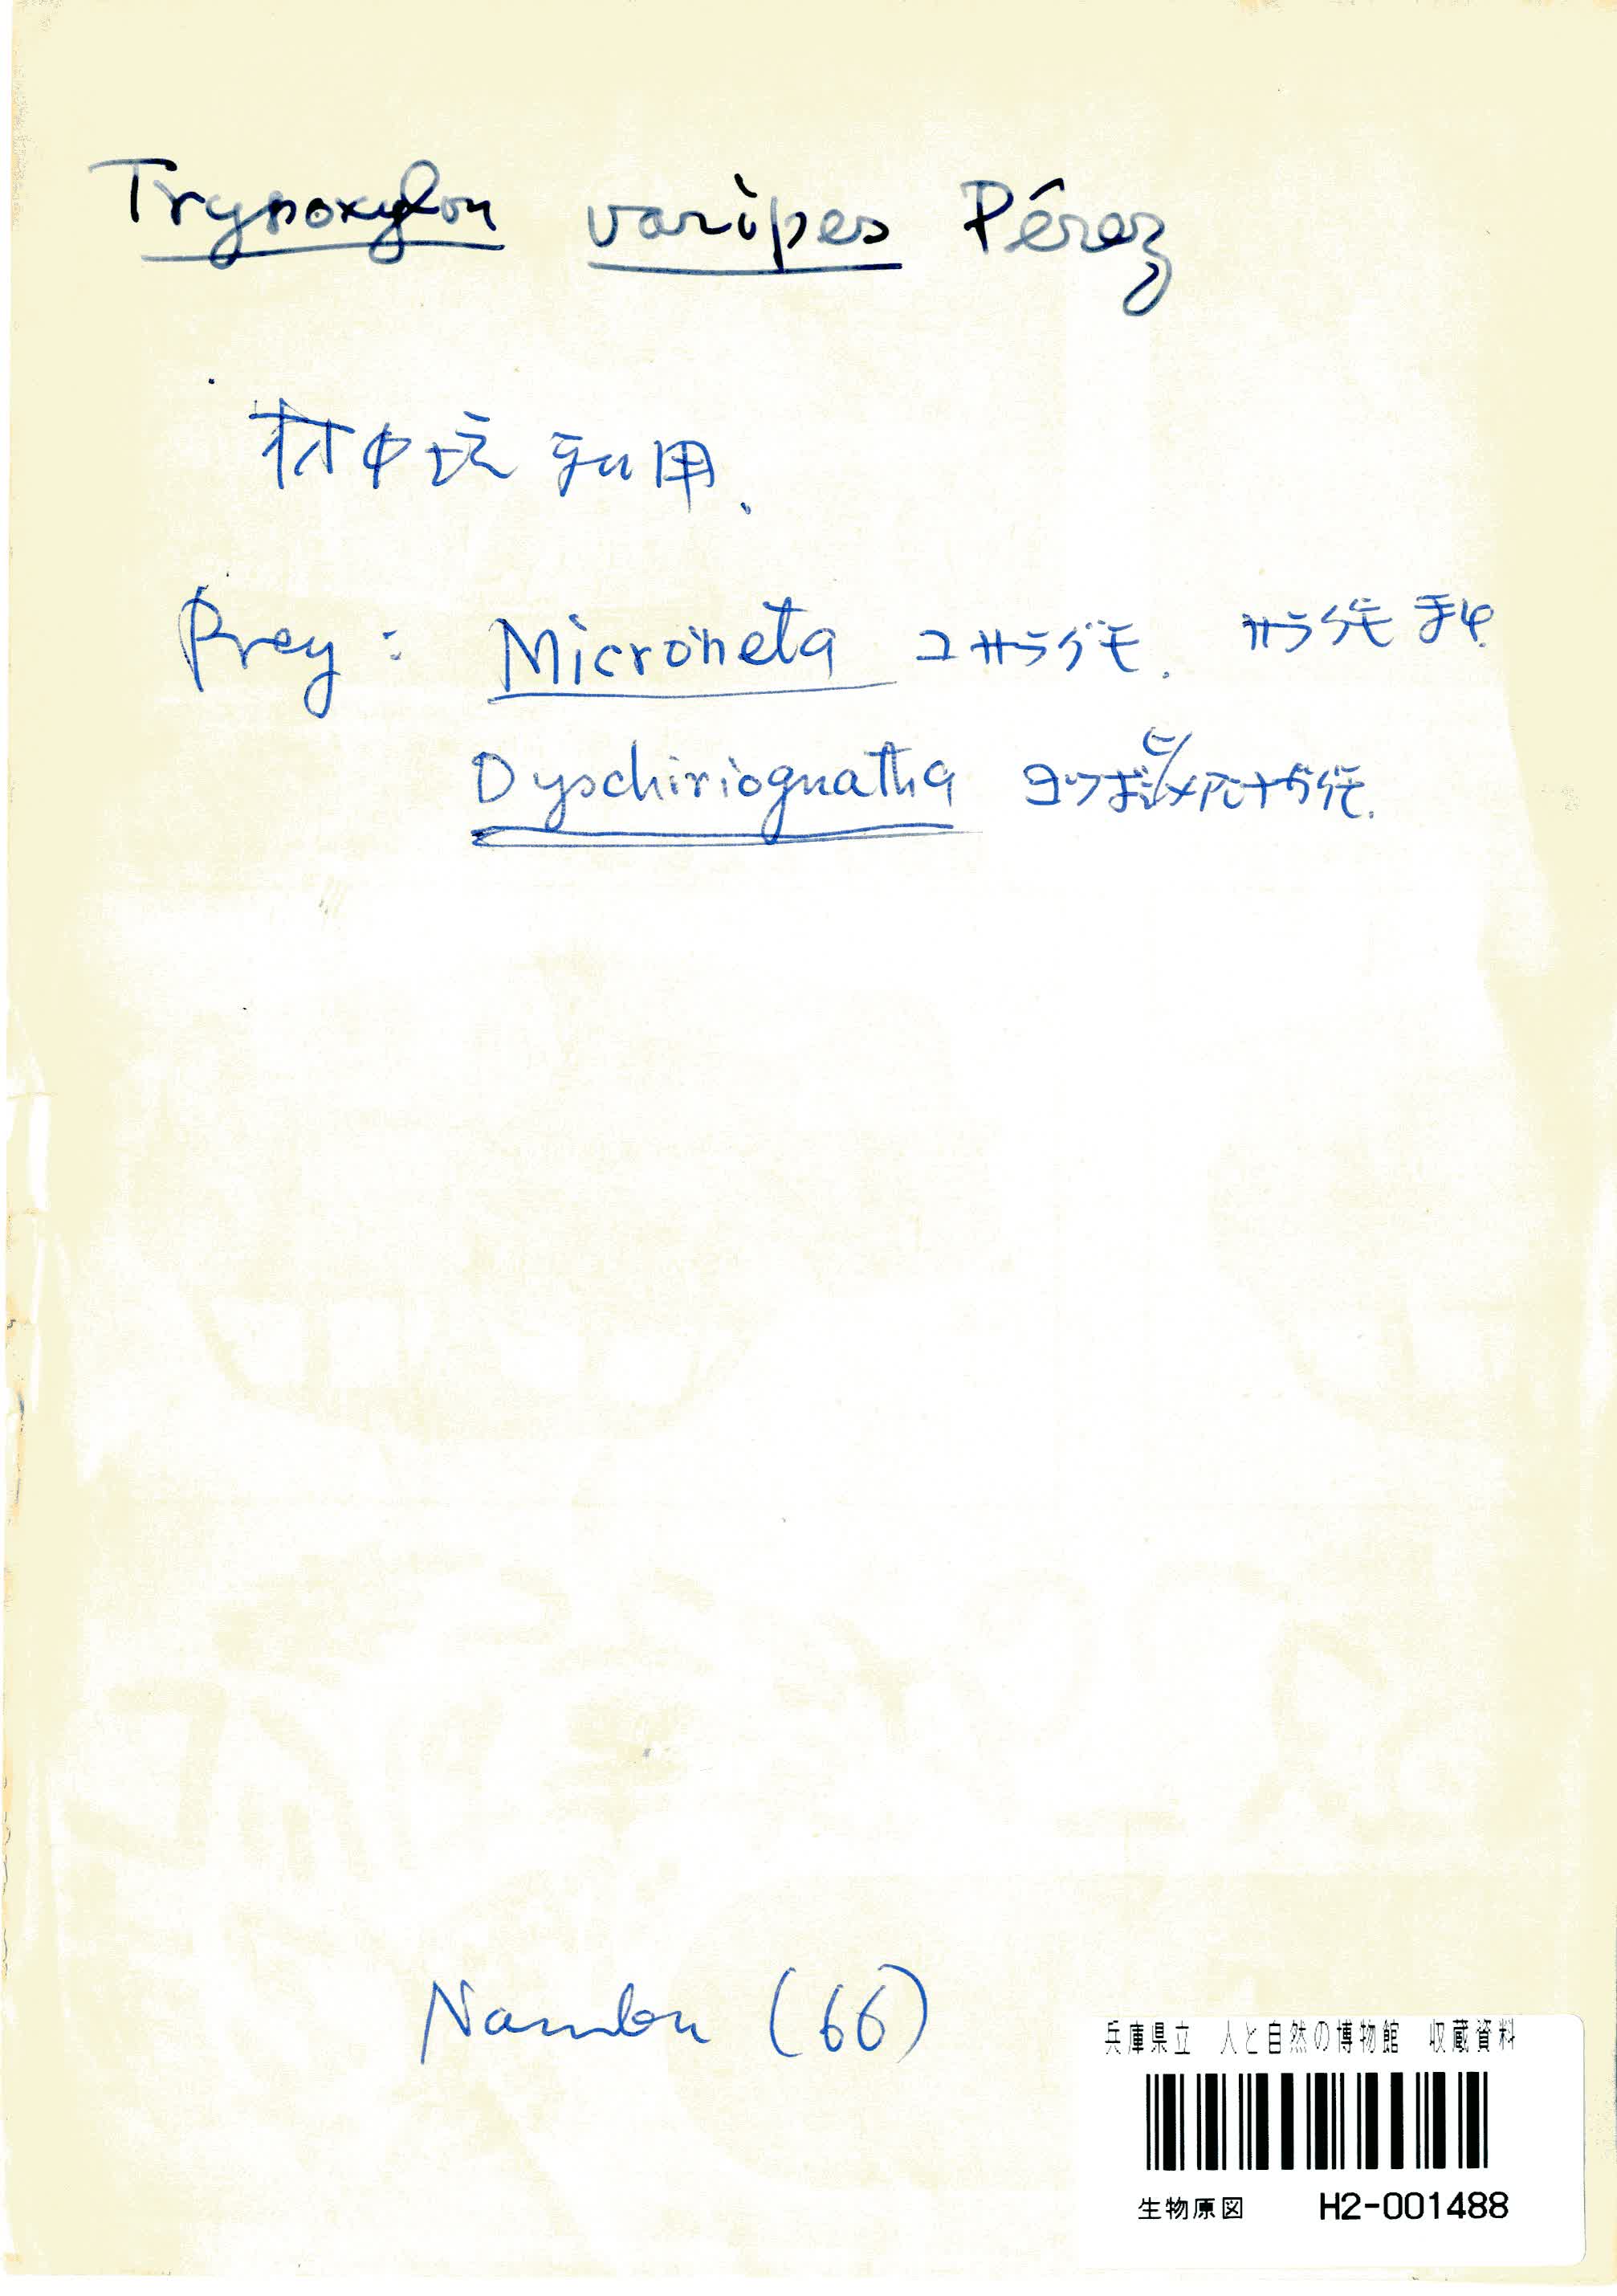 Trypoxylon varipes Pérez
材中坑 利用.
Prey : Microneta コサラグモ. サラグモ 科.
Dyschiriognatha ヨツボシヒメアシナガグモ.
Nambu (66)
兵庫県立 人と自然の博物館 収蔵資料
生物原図 H2-001488